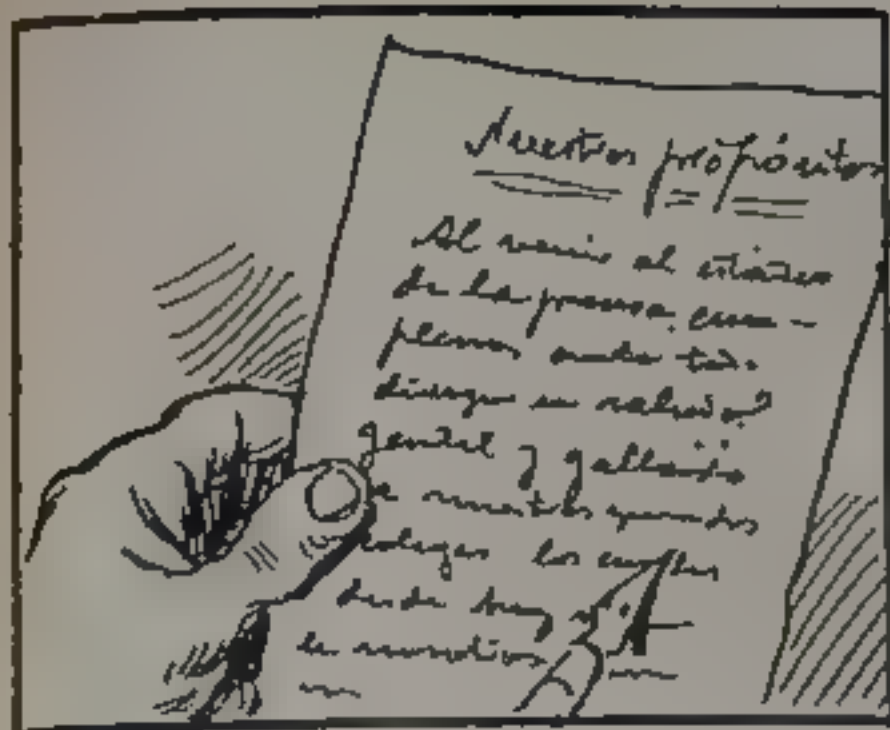 Nuestros propósitos
Al venir al estadio
de la prensa cum-
plenos ante todo
dirigir un saludo
gentil y gallardo
a nuestros queridos
colegas los cuales
desde hoy